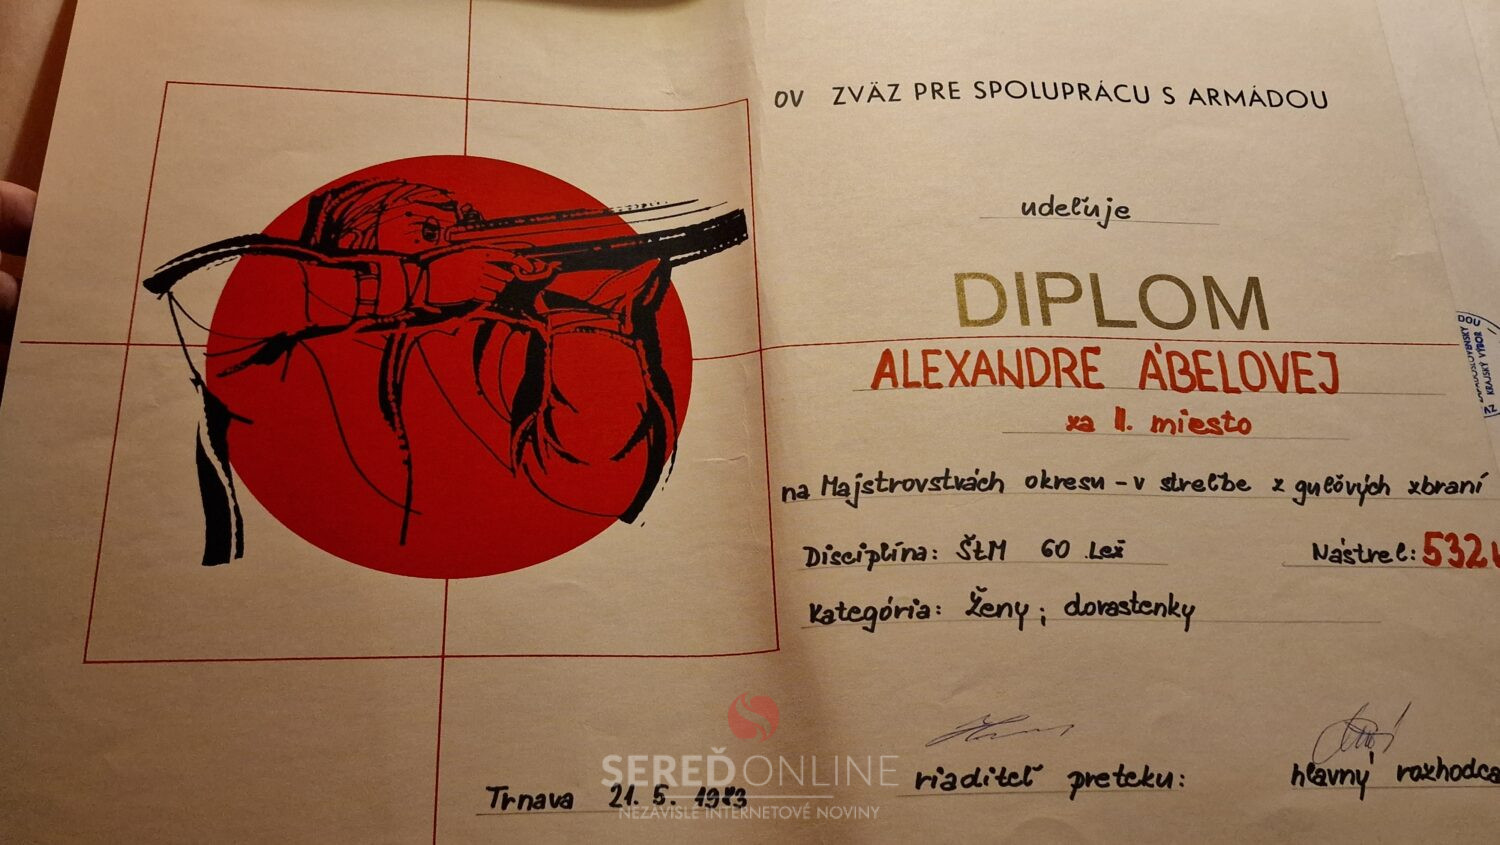 OV ZVÄZ PRE SPOLUPRÁCU S ARMÁDOU
udeľuje
DIPLOM
ALEXANDRE ÁBELOVEJ
za II. miesto
na Majstrovstvách okresu - v streľbe z guľových zbraní
Disciplína: ŠtM 60 Lež Nástrel: 532
Kategória: Ženy; dorastenky
riaditeľ preteku: hlavný rozhodca
Trnava 21. 5.
SEREĎONLINE
NEZÁVISLÉ INTERNETOVÉ NOVINY
DOU
KRAJSKÝ VÝBOR
ZV